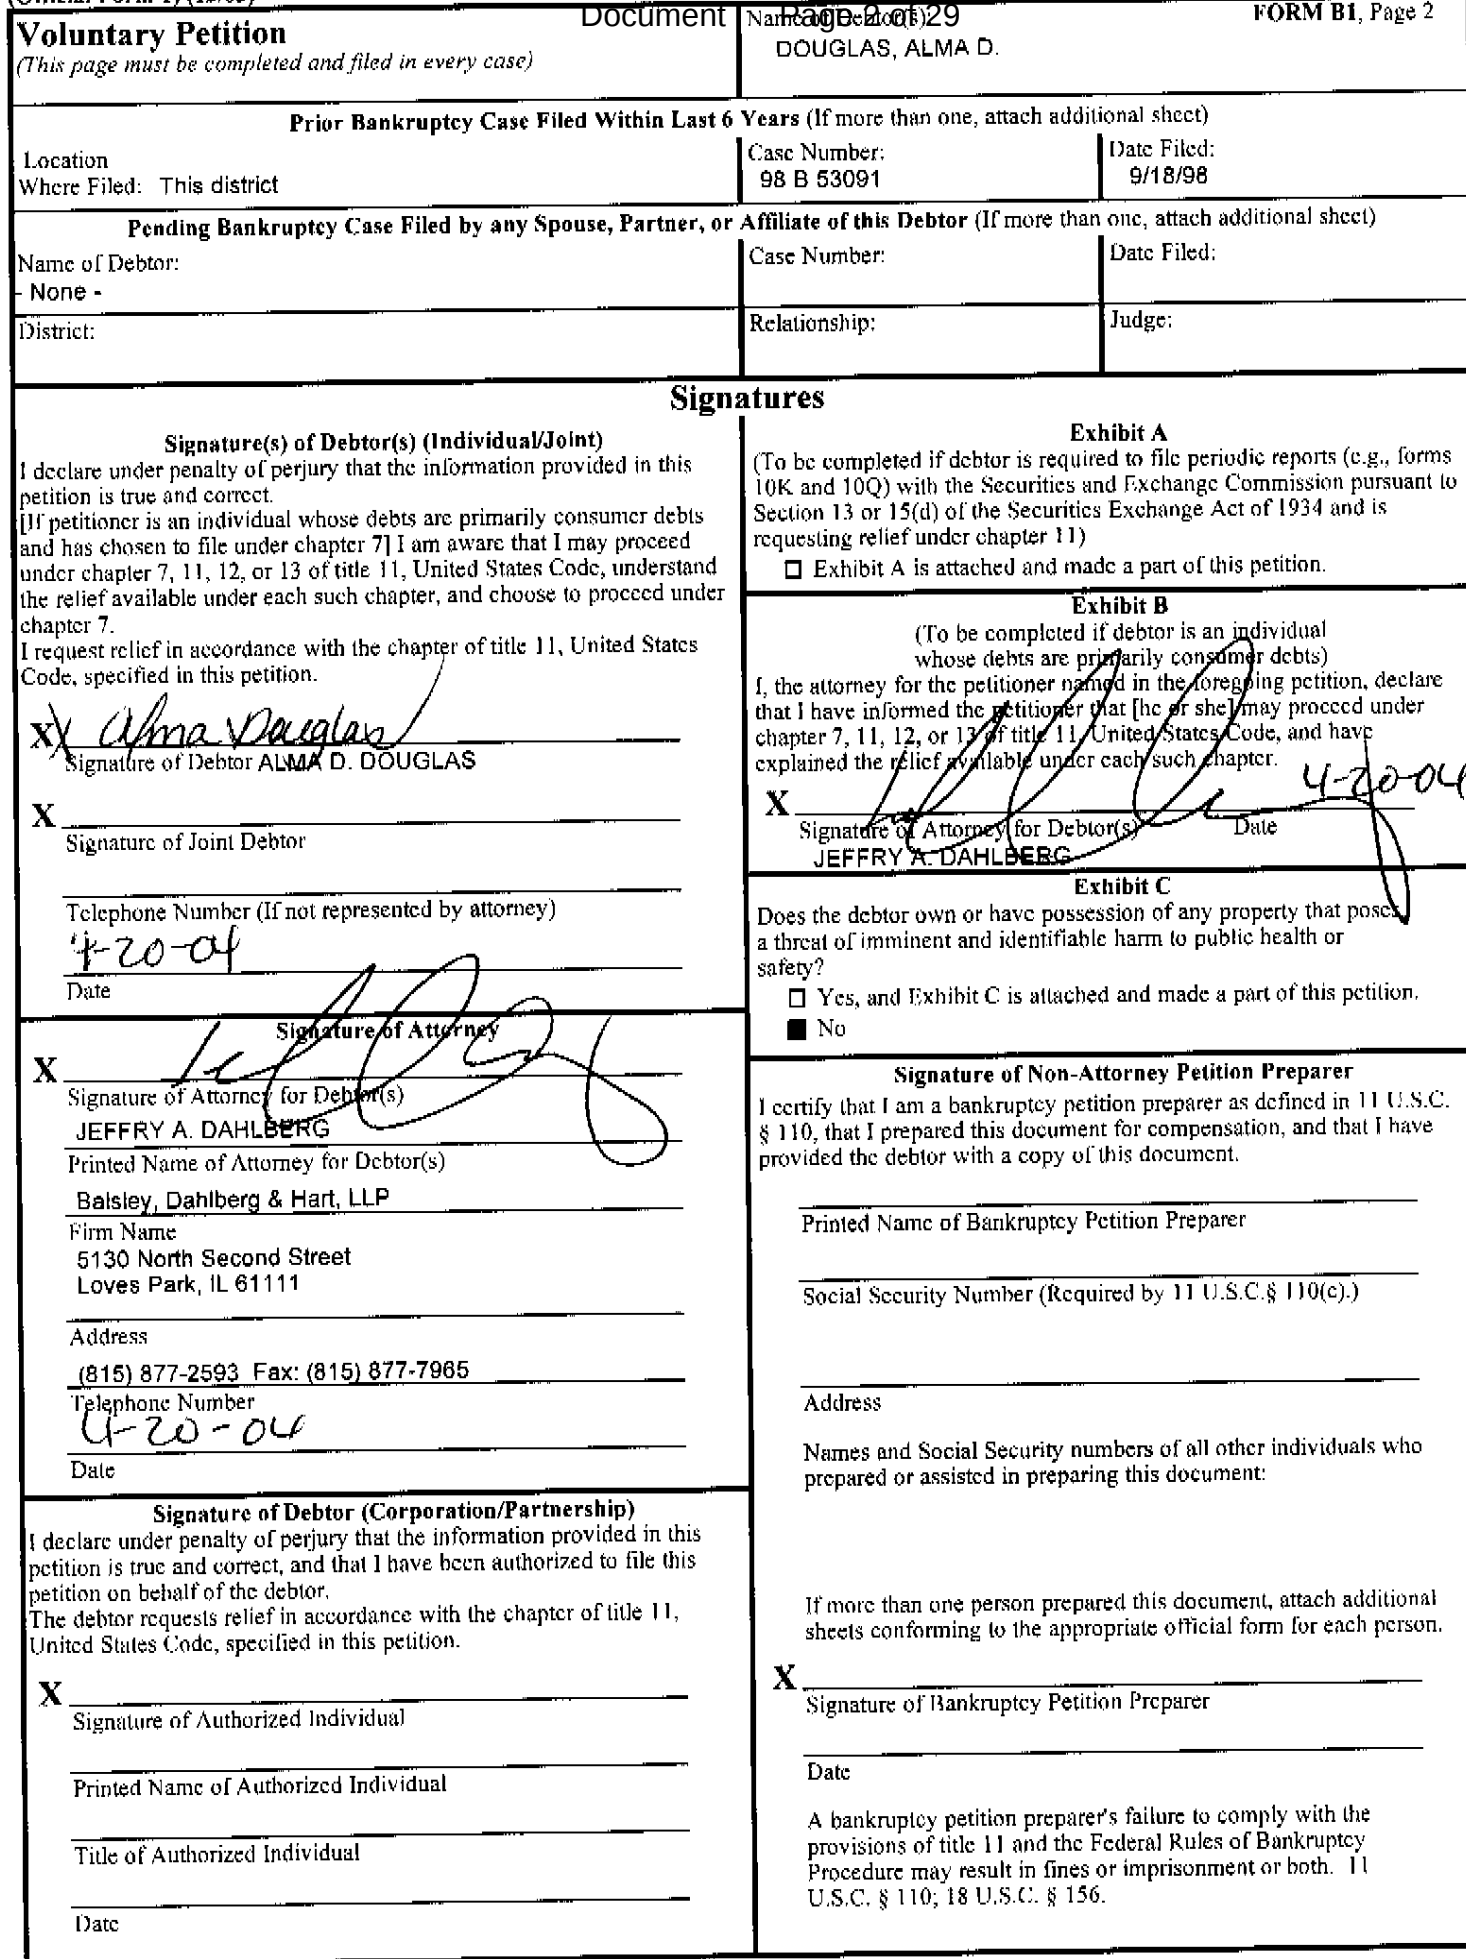 Document Page 2 of 29
Voluntary Petition
(This page must be completed and filed in every case)
Name of Debtor(s):
DOUGLAS, ALMA D.
FORM B1, Page 2
Prior Bankruptcy Case Filed Within Last 6 Years (If more than one, attach additional sheet)
Location
Where Filed: This district
Case Number:
98 B 53091
Date Filed:
9/18/98
Pending Bankruptcy Case Filed by any Spouse, Partner, or Affiliate of this Debtor (If more than one, attach additional sheet)
Name of Debtor:
- None -
Case Number:
Date Filed:
District:
Relationship:
Judge:
Signatures
Signature(s) of Debtor(s) (Individual/Joint)
I declare under penalty of perjury that the information provided in this
petition is true and correct.
[If petitioner is an individual whose debts are primarily consumer debts
and has chosen to file under chapter 7] I am aware that I may proceed
under chapter 7, 11, 12, or 13 of title 11, United States Code, understand
the relief available under each such chapter, and choose to proceed under
chapter 7.
I request relief in accordance with the chapter of title 11, United States
Code, specified in this petition.
X X Alma Douglas
Signature of Debtor ALMA D. DOUGLAS
X
Signature of Joint Debtor
Telephone Number (If not represented by attorney)
4-20-04
Date
Signature of Attorney
X
Signature of Attorney for Debtor(s)
JEFFRY A. DAHLBERG
Printed Name of Attorney for Debtor(s)
Balsley, Dahlberg & Hart, LLP
Firm Name
5130 North Second Street
Loves Park, IL 61111
Address
(815) 877-2593 Fax: (815) 877-7965
Telephone Number
4-20-04
Date
Signature of Debtor (Corporation/Partnership)
I declare under penalty of perjury that the information provided in this
petition is true and correct, and that I have been authorized to file this
petition on behalf of the debtor.
The debtor requests relief in accordance with the chapter of title 11,
United States Code, specified in this petition.
X
Signature of Authorized Individual
Printed Name of Authorized Individual
Title of Authorized Individual
Date
Exhibit A
(To be completed if debtor is required to file periodic reports (e.g., forms
10K and 10Q) with the Securities and Exchange Commission pursuant to
Section 13 or 15(d) of the Securities Exchange Act of 1934 and is
requesting relief under chapter 11)
☐ Exhibit A is attached and made a part of this petition.
Exhibit B
(To be completed if debtor is an individual
whose debts are primarily consumer debts)
I, the attorney for the petitioner named in the foregoing petition, declare
that I have informed the petitioner that [he or she] may proceed under
chapter 7, 11, 12, or 13 of title 11, United States Code, and have
explained the relief available under each such chapter.
X 4-20-04
Signature of Attorney for Debtor(s) Date
JEFFRY A. DAHLBERG
Exhibit C
Does the debtor own or have possession of any property that poses
a threat of imminent and identifiable harm to public health or
safety?
☐ Yes, and Exhibit C is attached and made a part of this petition.
■ No
Signature of Non-Attorney Petition Preparer
I certify that I am a bankruptcy petition preparer as defined in 11 U.S.C.
§ 110, that I prepared this document for compensation, and that I have
provided the debtor with a copy of this document.
Printed Name of Bankruptcy Petition Preparer
Social Security Number (Required by 11 U.S.C.§ 110(c).)
Address
Names and Social Security numbers of all other individuals who
prepared or assisted in preparing this document:
If more than one person prepared this document, attach additional
sheets conforming to the appropriate official form for each person.
X
Signature of Bankruptcy Petition Preparer
Date
A bankruptcy petition preparer's failure to comply with the
provisions of title 11 and the Federal Rules of Bankruptcy
Procedure may result in fines or imprisonment or both. 11
U.S.C. § 110; 18 U.S.C. § 156.